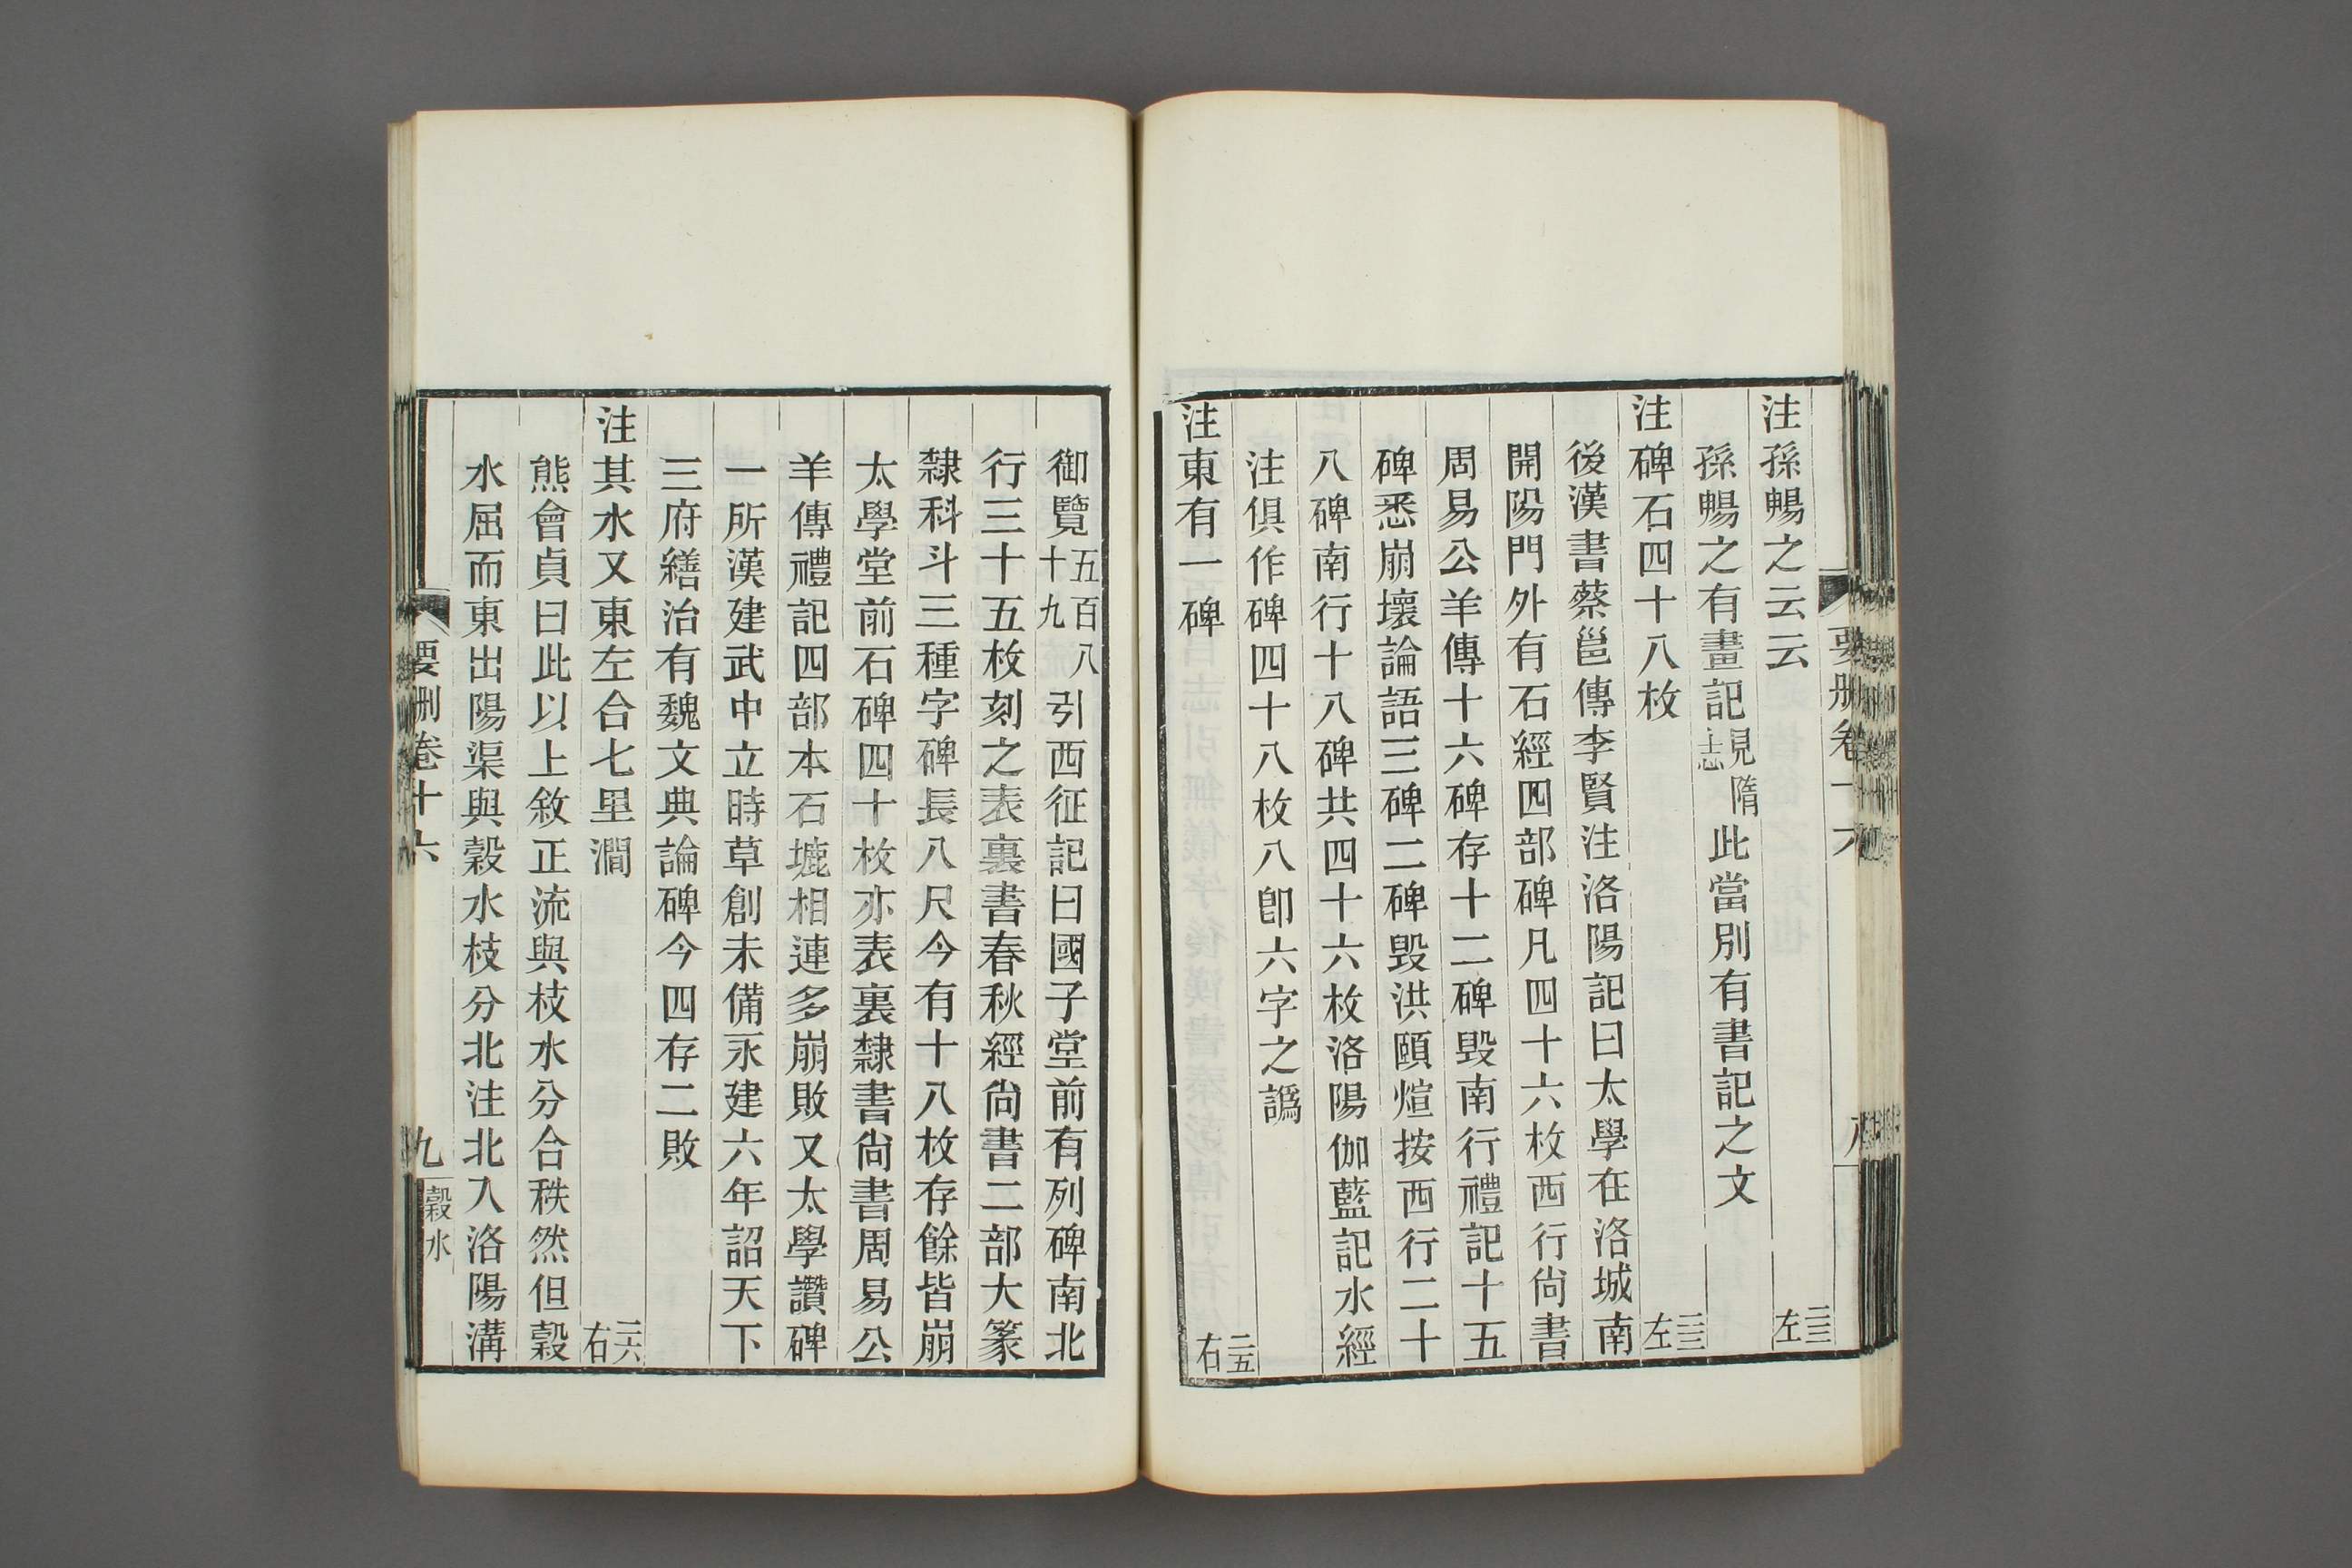 要刪卷十六
八
注孫暢之云云 二三左
孫暢之有畫記見隋志此當別有書記之文
注碑石四十八枚 二三左
後漢書蔡邕傳李賢注洛陽記曰太學在洛城南
開陽門外有石經四部碑凡四十六枚西行尚書
周易公羊傳十六碑存十二碑毀南行禮記十五
碑悉崩壞論語三碑二碑毀洪頤煊按西行二十
八碑南行十八碑共四十六枚洛陽伽藍記水經
注俱作碑四十八枚八卽六字之譌
注東有一碑 二五右
御覽五百八十九引西征記曰國子堂前有列碑南北
行三十五枚刻之表裏書春秋經尚書二部大篆
隸科斗三種字碑長八尺今有十八枚存餘皆崩
太學堂前石碑四十枚亦表裏隸書尚書周易公
羊傳禮記四部本石塶相連多崩敗又太學讚碑
一所漢建武中立時草創未備永建六年詔天下
三府繕治有魏文典論碑今四存二敗
注其水又東左合七里澗 二六右
熊會貞曰此以上敘正流與枝水分合秩然但穀
水屈而東出陽渠與穀水枝分北注北入洛陽溝
要刪卷十六
九
穀水